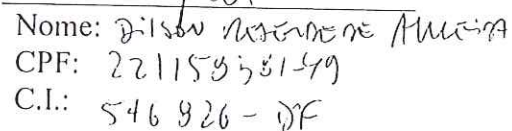 Nome: Dilson Resende de Almeida
CPF: 221159531-49
C.I.: 546926 - DF